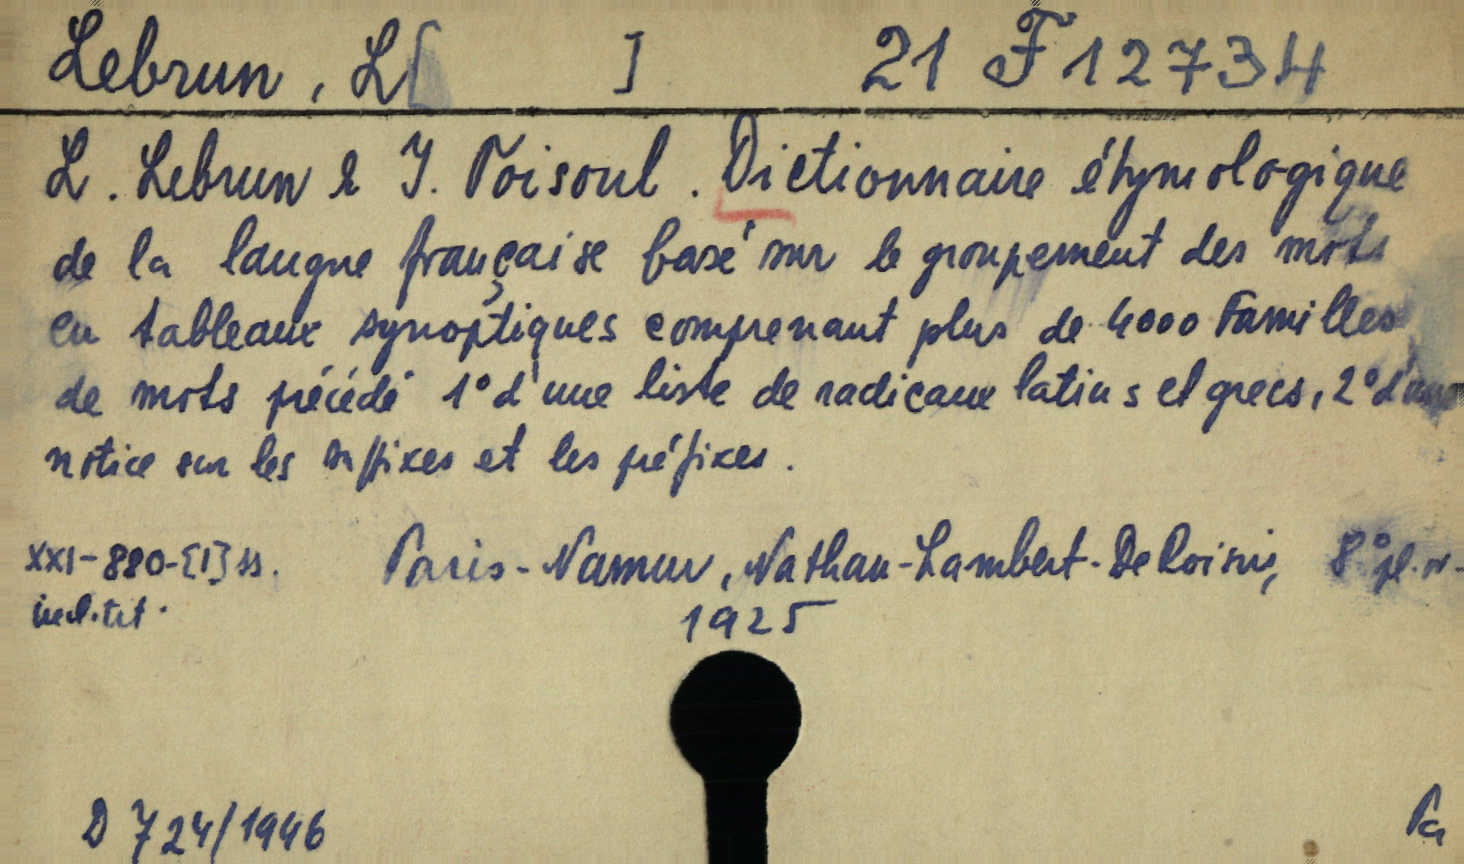 Lebrun, L[ ] 21 F 12734
L. Lebrun & J. Toisoul. Dictionnaire étymologique
de la langue française basé sur le groupement des mots
en tableaux synoptiques comprenant plus de 4000 Familles
de mots précédé 1° d'une liste de radicaux latins et grecs, 2° d'une
notice sur les suffixes et les préfixes.
XXI-880-[1] ss. Paris-Namur, Nathan-Lambert-De Roisin, 8°
incl. tit. 1925
D 724/1946